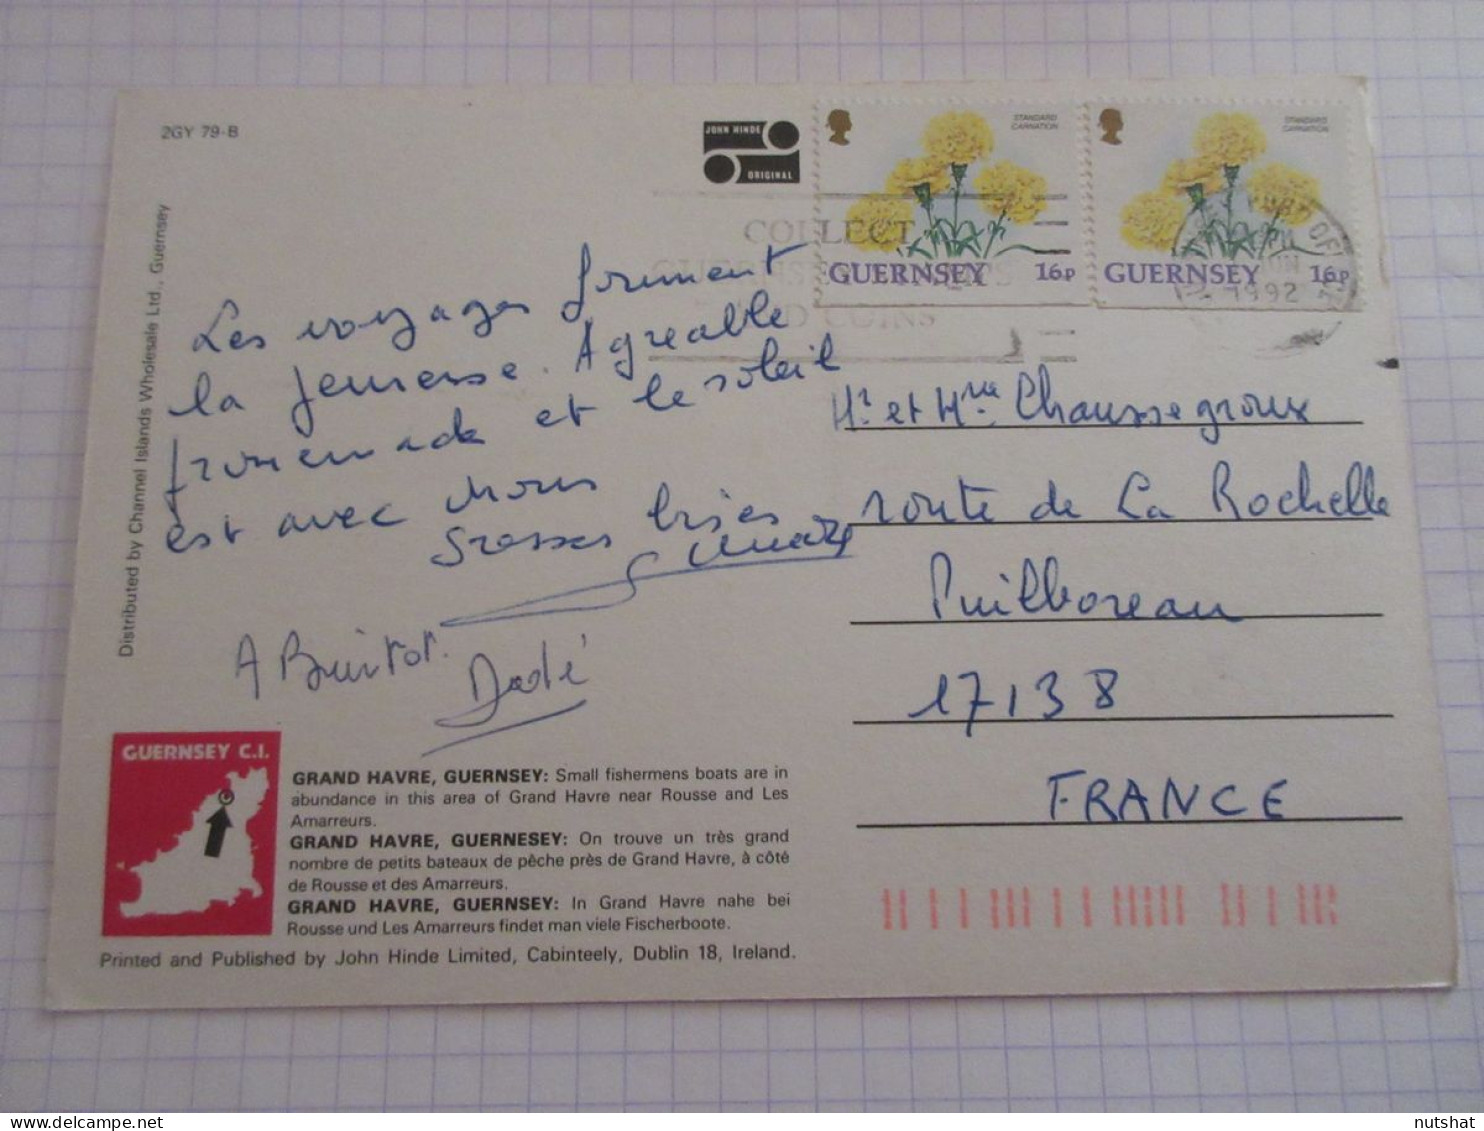 2GY 79-B
JOHN HINDE
ORIGINAL
STANDARD
CARNATION
GUERNSEY 16p
STANDARD
CARNATION
GUERNSEY 16p
COLLECT
COINS
POST OF
1992
Distributed by Channel Islands Wholesale Ltd., Guernsey
Les voyages forment
la jeunesse. Agréable
promenade et le soleil
est avec nous
Grosses bises
A Buirtot.
Dadé
Mr et Mme Chaussegroux
route de La Rochelle
Puilboreau
17138
FRANCE
GUERNSEY C.I.
GRAND HAVRE, GUERNSEY: Small fishermens boats are in
abundance in this area of Grand Havre near Rousse and Les
Amarreurs.
GRAND HAVRE, GUERNESEY: On trouve un très grand
nombre de petits bateaux de pêche près de Grand Havre, à côté
de Rousse et des Amarreurs.
GRAND HAVRE, GUERNSEY: In Grand Havre nahe bei
Rousse und Les Amarreurs findet man viele Fischerboote.
Printed and Published by John Hinde Limited, Cabinteely, Dublin 18, Ireland.
nutshat